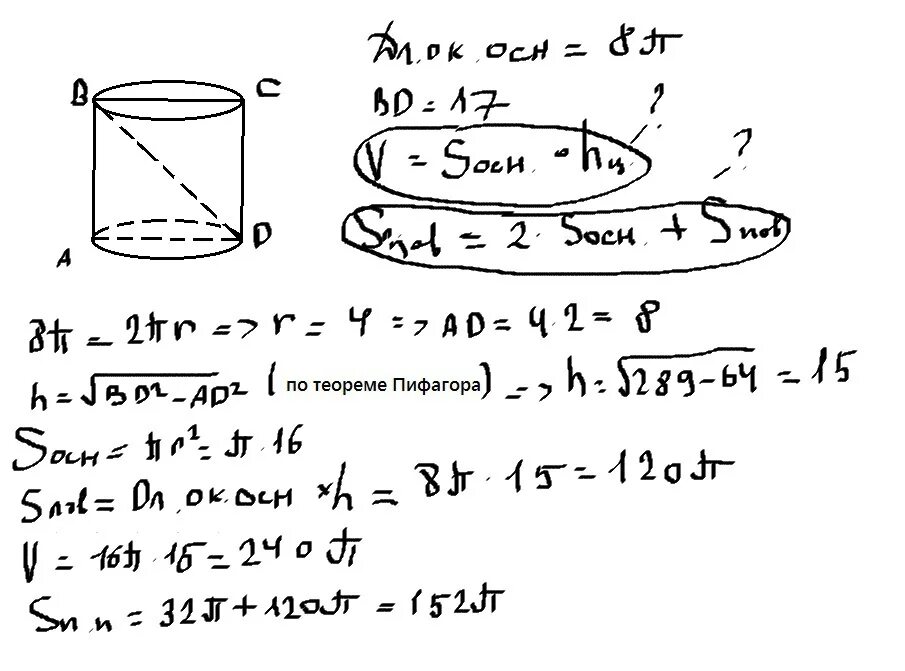 Дл.ок.осн = 8π
B C
BD = 17 ?
V = Sосн. · hц ?
A D
Sппов = 2 · Sосн. + Sпов
8π = 2πr => r = 4 => AD = 4·2 = 8
h = √BD² - AD² ( по теореме Пифагора) => h = √289-64 = 15
Sосн = πr² = π·16
Sпов = Дл.ок.осн × h = 8π · 15 = 120π
V = 16π · 15 = 240π
Sп.п = 32π + 120π = 152π